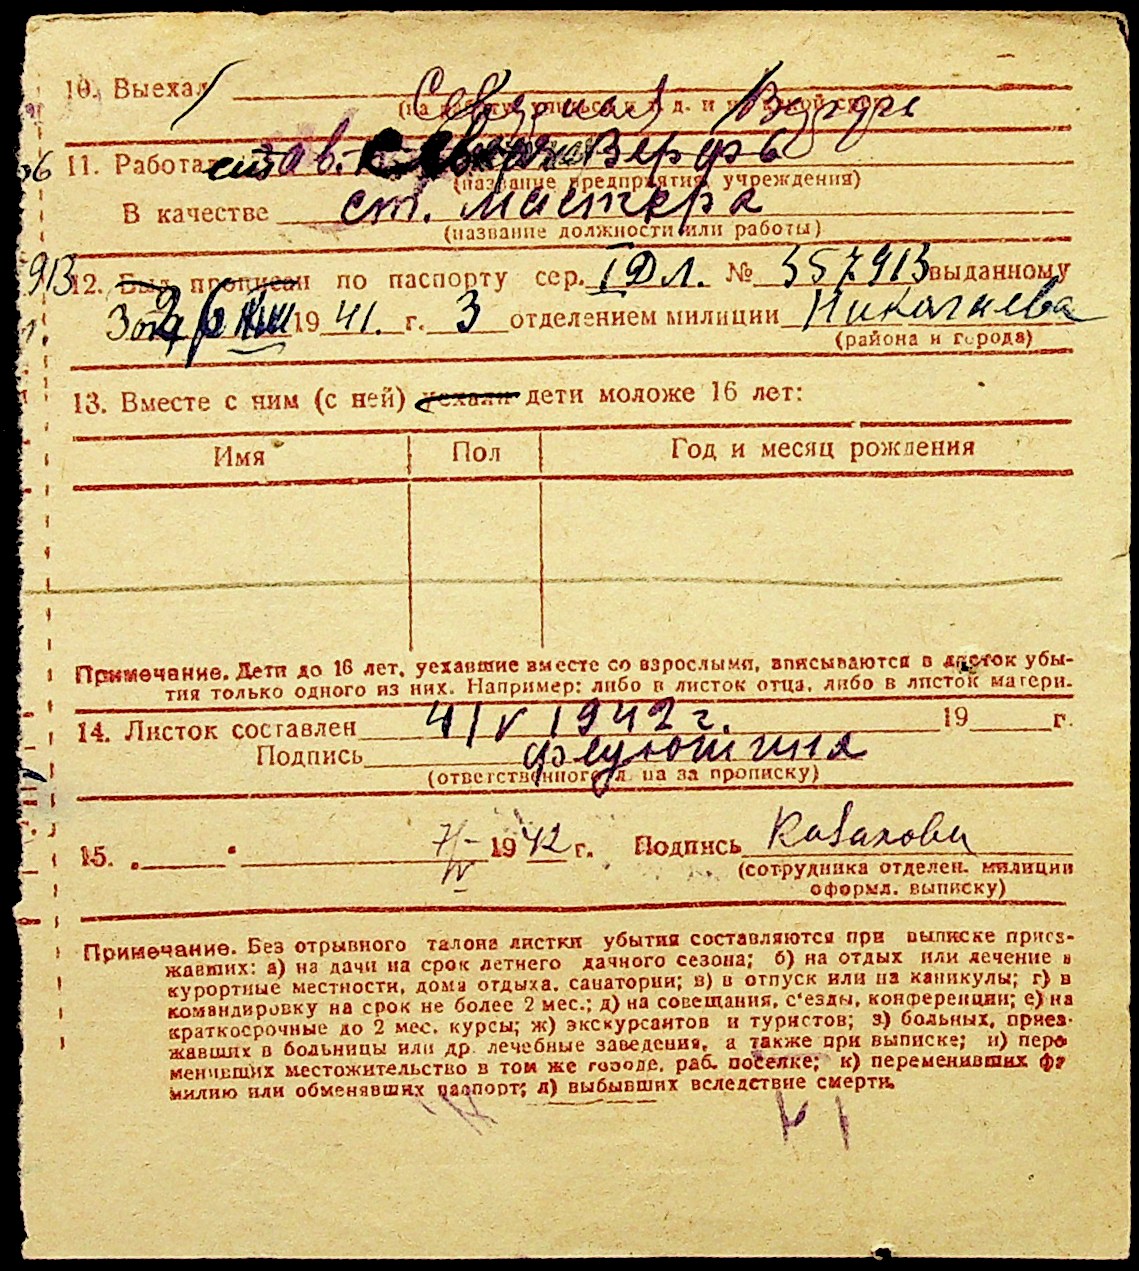 10. Выехал Северная Верфь
11. Работал Верфь
(название предприятия, учреждения)
В качестве ст. мастера
(название должности или работы)
913
12. Был прописан по паспорту сер. I ДЛ. № 357913 выданному
1941. г. 3 отделением милиции Николаева
(района и города)
13. Вместе с ним (с ней) уехали дети моложе 16 лет:
Имя Пол Год и месяц рождения
Примечание. Дети до 16 лет, уехавшие вместе со взрослыми, вписываются в листок убы-
тия только одного из них. Например: либо в листок отца, либо в листок матери.
14. Листок составлен 4/V 1942 г. 19 г.
Подпись Федюшина
(ответственного лица за прописку)
15. „ " 7/IV 1942 г. Подпись Казакова
(сотрудника отделен. милиции
оформл. выписку)
Примечание. Без отрывного талона листки убытия составляются при выписке приез-
жавших: а) на дачи на срок летнего дачного сезона; б) на отдых или лечение в
курортные местности, дома отдыха, санатории; в) в отпуск или на каникулы; г) в
командировку на срок не более 2 мес.; д) на совещания, с'езды, конференции; е) на
краткосрочные до 2 мес. курсы; ж) экскурсантов и туристов; з) больных, приез-
жавших в больницы или др. лечебные заведения, а также при выписке; и) пере
менивших местожительство в том же городе, раб. поселке; к) переменивших фа
милию или обменявших паспорт; л) выбывших вследствие смерти.